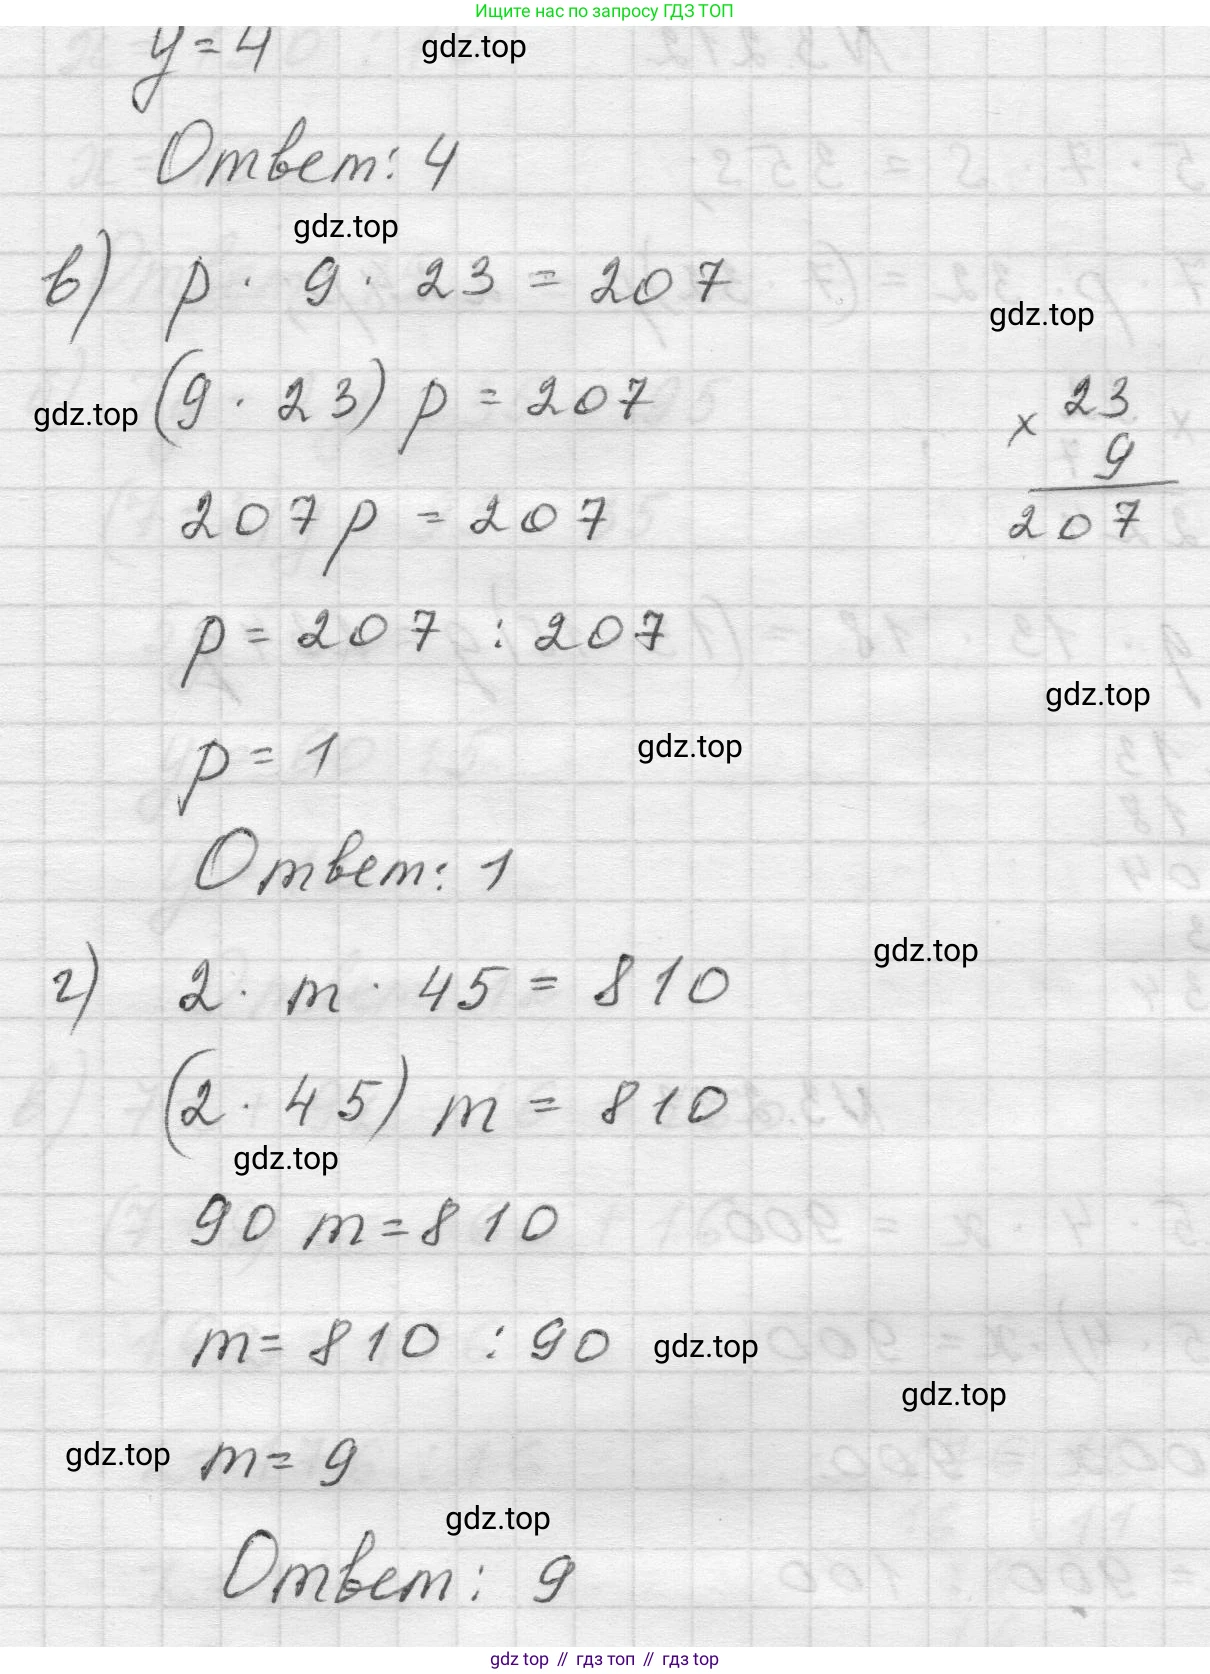 Ищите нас по запросу ГДЗ ТОП
y = 4
gdz.top
Ответ: 4
gdz.top
в) p · 9 · 23 = 207
gdz.top
gdz.top
(9 · 23) p = 207
× 23
9
207
207 p = 207
p = 207 : 207
gdz.top
p = 1
gdz.top
Ответ: 1
gdz.top
г) 2 · m · 45 = 810
(2 · 45) m = 810
gdz.top
90 m = 810
m = 810 : 90
gdz.top
gdz.top
gdz.top
m = 9
gdz.top
Ответ: 9
gdz top // гдз топ // гдз top